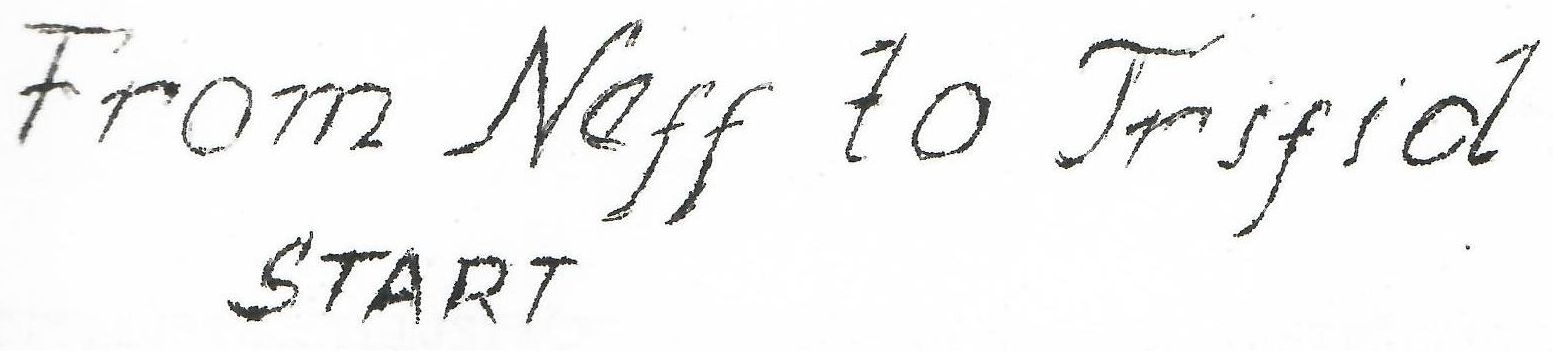 From Neff to Trifid
START